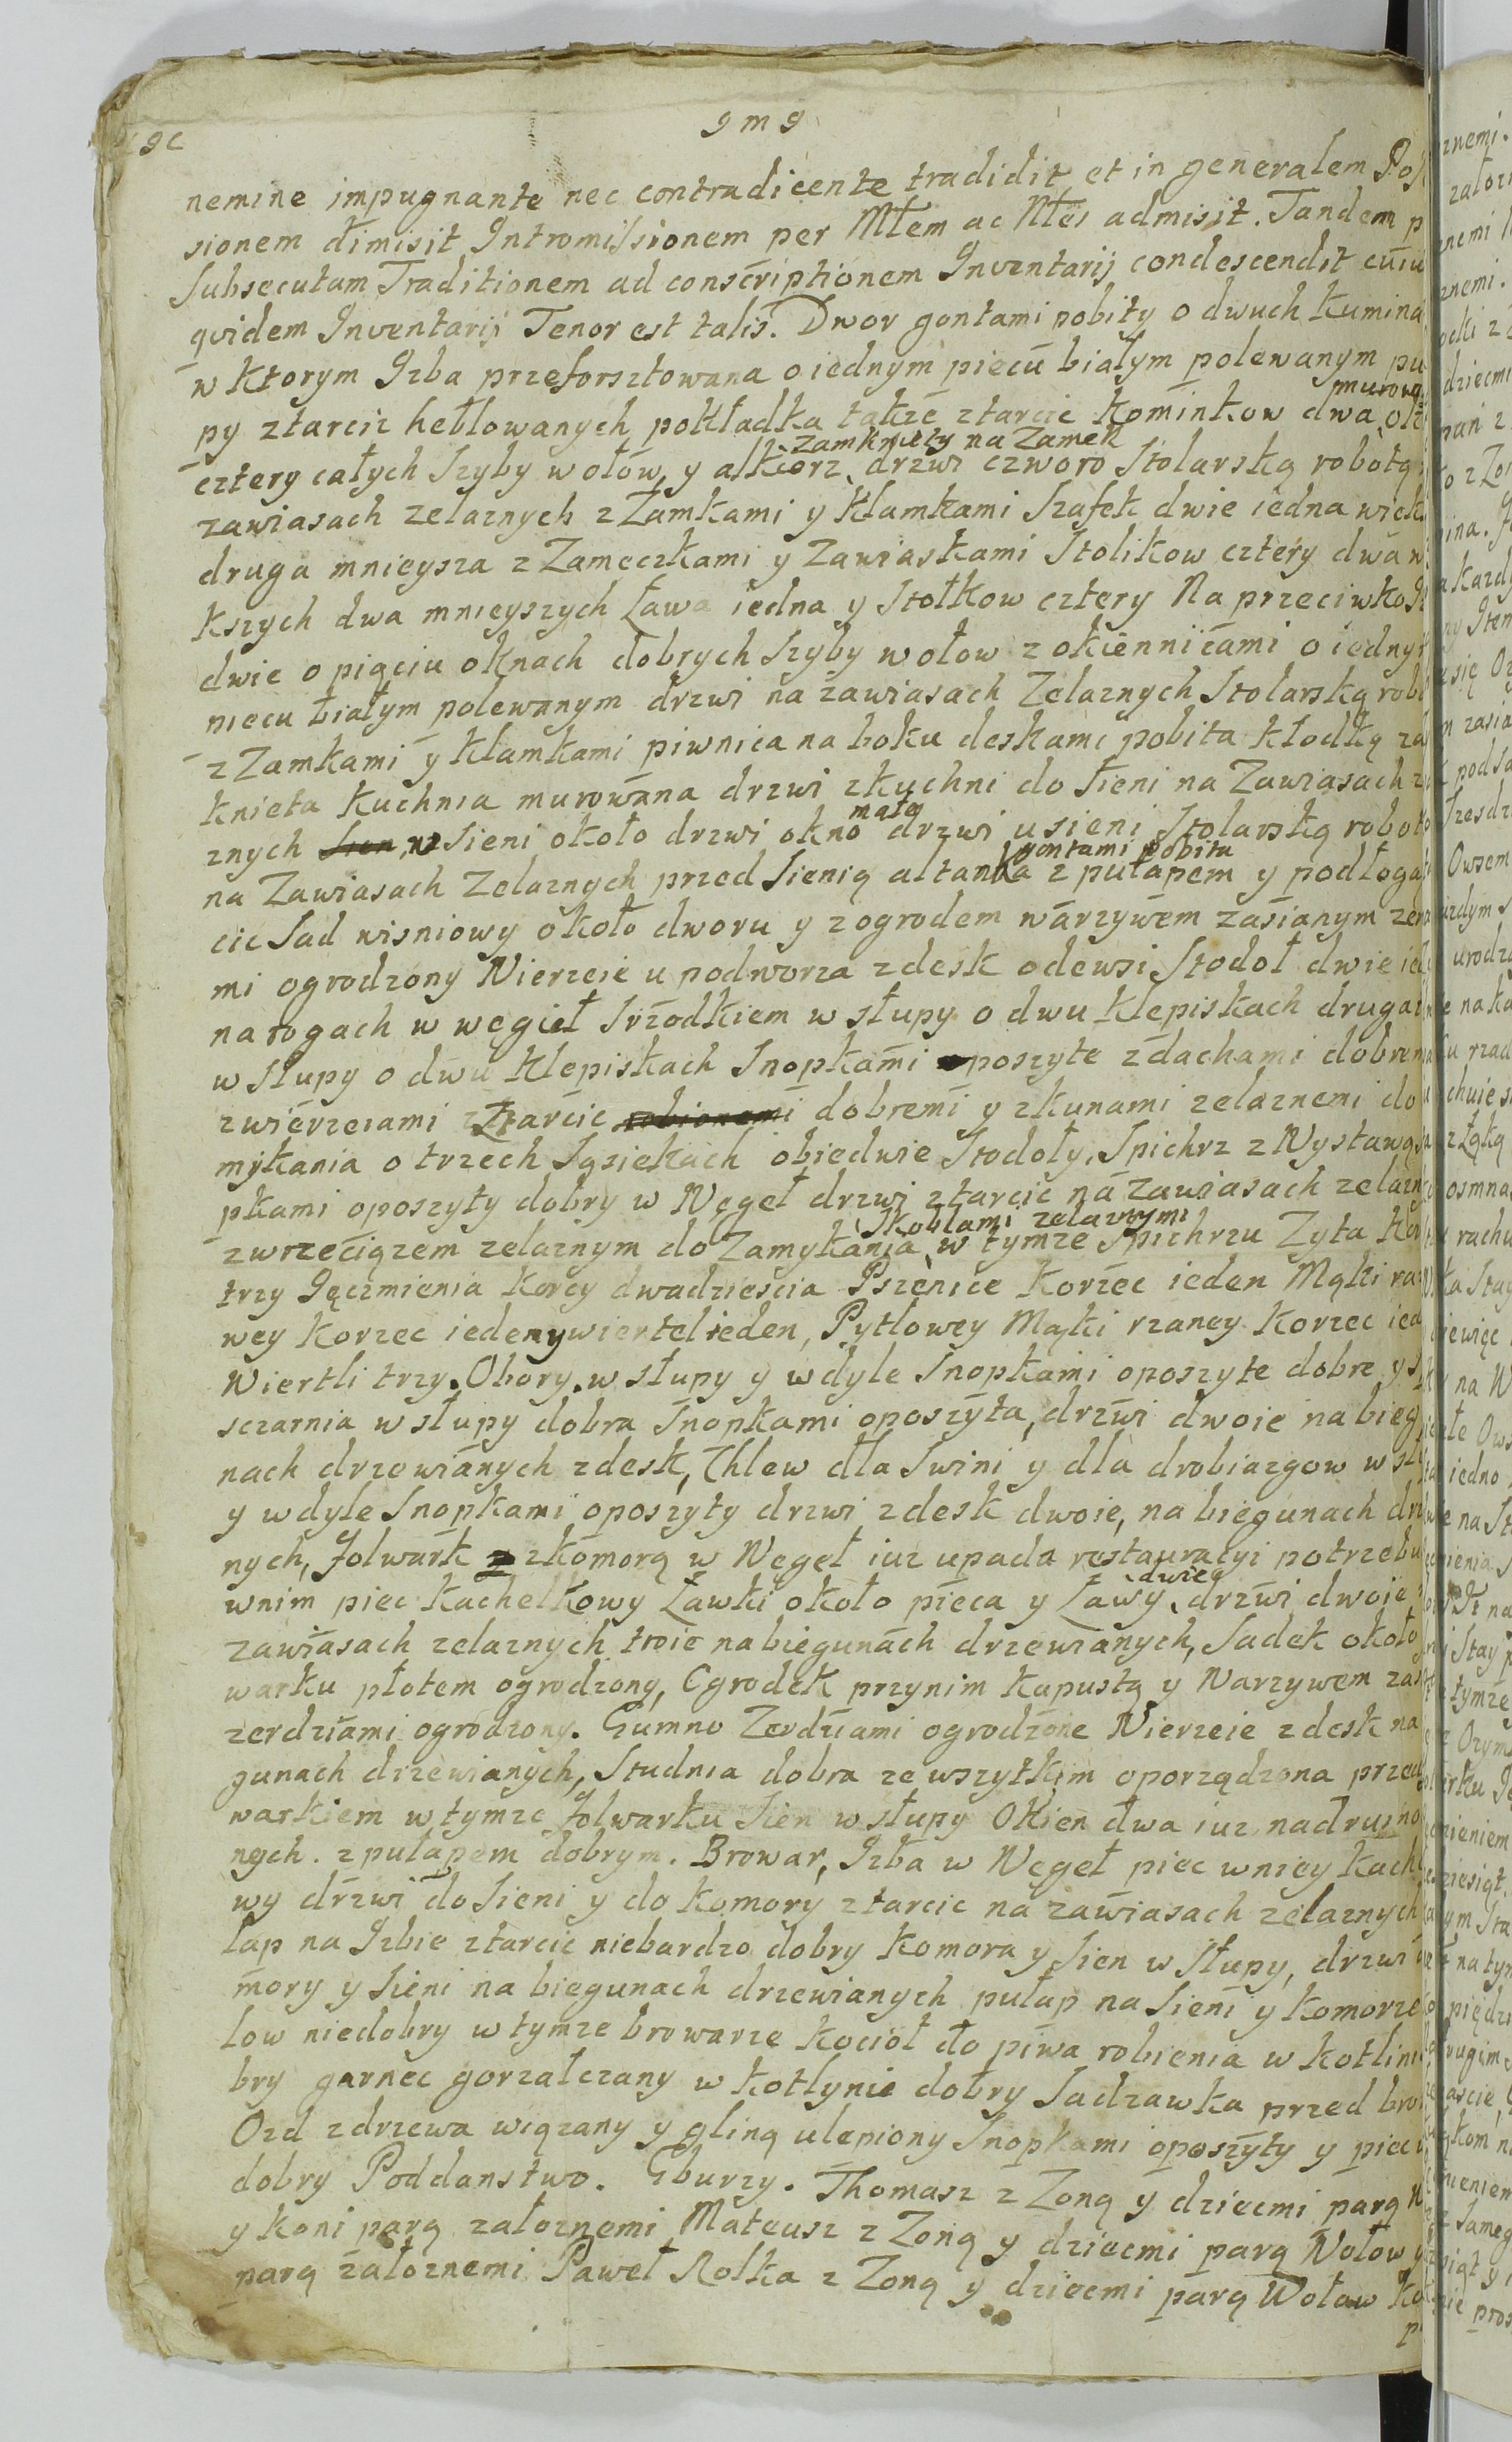 9c
9 m 9
nemine impugnante nec contradicente tradidit et in generalem Pos
sionem dimisit Intromissionem per Mtem ac Ntes admisit. Tandem p
Subsecutam Traditionem ad conscriptionem Inventarij condescendit cuiu
qvidem Inventarij Tenor est talis. Dwor gontami pobity o dwuch kumina
w ktorym Izba przeforsztowana o iednym piecu białym polewanym pu
py ztarcic heblowanych pokładka także ztarcic kominkow dwa murowa ok
cztery całych Szyby w ołow y alkierz zamknięty na Zamek drzwi czworo Stolarską robotą
zawiasach zelaznych z Zamkami y klamkami Szafek dwie iedna więk
druga mnieysza z Zameczkami y Zawiaskami Stolikow cztery dwa w
kszych dwa mnieyszych Ława iedna y Stołkow cztery Na przeciwko Iz
dwie o pięciu oknach dobrych Szyby w ołow z okiennicami o iednym
piecu białym polewanym drzwi na zawiasach Zelaznych Stolarską rob
z Zamkami y klamkami piwnica na boku deskami pobita kłodką za
knieta Kuchnia murowana drzwi zkuchni do Sieni na Zawiasach ze
znych Sien, w Sieni około drzwi okno małe drzwi u sieni Stolarską robot
na Zawiasach Zelaznych przed Sienią altanka gontami pobita z pułapem y podłoga
cic Sad wisniowy około dworu y zogrodem warzywem zasianym zer
mi ogrodzony Wierzeie u podworza zdesk odewsi Stodoł dwie ie
na rogach w wegieł Srzodkiem w słupy o dwu klepiskach druga
w Słupy o dwu klepiskach Snopkami poszyte zdachami dobrem
zwierzeiami ztarcic robionemi dobremi y zkunami zelaznemi do
mykania o trzech Sąsiekach obiedwie Stodoły, Spichrz z Wystawą
pkami oposzyty dobry w Węgeł drzwi ztarcic na zawiasach zelazn
zwrzeciązem zelaznym do Zamykania Skoblami zelaznymi w tymze Spichrzu Zyta Kor
trzy Jęczmienia Korcy dwadziescia Pszenice korzec ieden Mąki ra
wey Korzec ieden y wiertel ieden, Pytlowey Mąki rzaney korzec ied
Wiertli trzy. Obory w słupy y w dyle Snopkami oposzyte dobre y s
sczarnia w słupy dobra Snopkami oposzyta, drzwi dwoie na bieg
nach drzewianych zdesk, Chlew dla Swini y dla drobiazgow w sł
y w dyle Snopkami oposzyty drzwi zdesk dwoie, na biegunach drz
nych, folwark z zkomorą w Wegeł iuz upada restauracyi potrzebu
wnim piec kachelkowy Ławki około pieca y Ławy dwie drzwi dwoie
zawiasach zelaznych troie na biegunach drzewianych, Sadek około
warku płotem ogrodzony, Ogrodek przynim kapustą y Warzywem zas
zerdziami ogrodzony. Gumno Zerdziami ogrodzone Wierzeie zdesk na
gunach drzewianych, Studnia dobra ze wszytkim oporządzona przed
warkiem w tymze folwarku Sien w słupy Okien dwa iuz nadruzno
nych. z pułapem dobrym. Browar, Izba w Wegeł piec wniey kach
wy drzwi do Sieni y do komory ztarcic na zawiasach zelaznych
łap na Izbie ztarcic niebardzo dobry komora y Sien w Słupy, drzwi
mory y Sieni na biegunach drzewianych pułap na Sieni y komorze
low niedobry w tymze browarze kocioł do piwa robienia w kotlini
bry garnec gorzałczany w kotlynie dobry Sadzawka przed bro
Ozd zdrzewa wiązany y gliną ulepiony Snopkami oposzyty y piec
dobry Poddanstwo. Gburzy. Thomasz z Zoną y dziecmi parą W
y koni parą załoznemi Mateusz z Zoną y dziecmi parą Wołow y
parą załoznemi Paweł Rolka z Zoną y dziecmi parą Wołow Ko